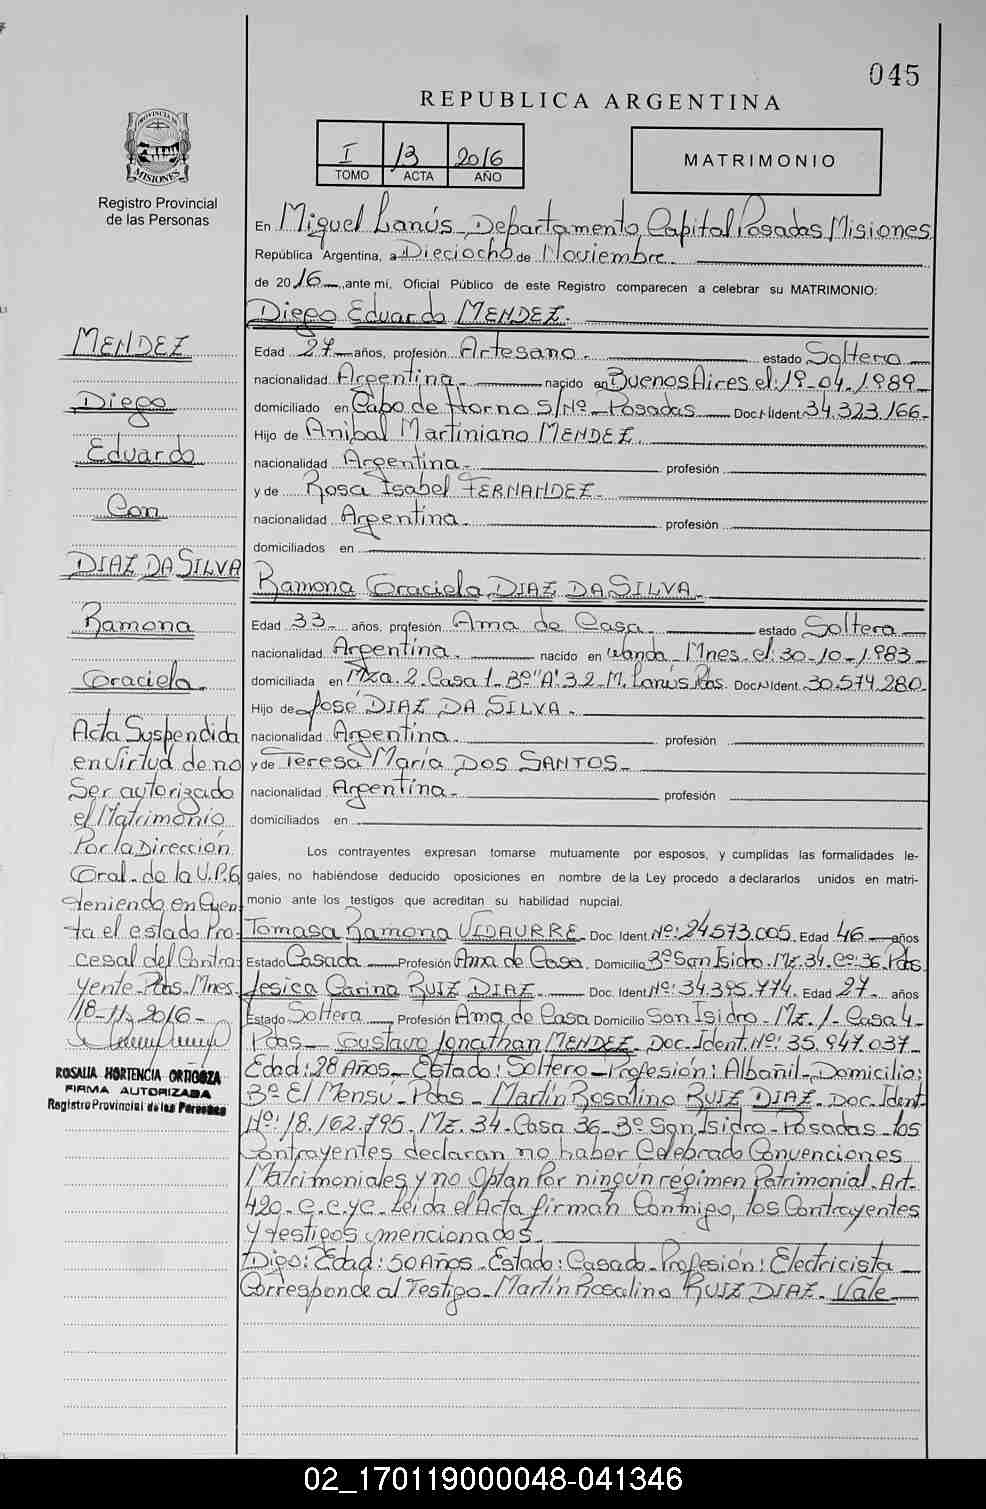 045
REPUBLICA ARGENTINA
PROVINCIA DE
MISIONES
I 13 2016
TOMO ACTA AÑO
MATRIMONIO
Registro Provincial
de las Personas
En Miguel Lanús - Departamento Capital Posadas, Misiones
República Argentina, a Dieciocho de Noviembre
de 2016 ante mí, Oficial Público de este Registro comparecen a celebrar su MATRIMONIO:
Diego Eduardo MENDEZ.
Edad 27 años, profesión Artesano. estado Soltero
nacionalidad Argentina. nacido en Buenos Aires el: 19-04-1989
domiciliado en Cabo de Horno S/Nº - Posadas Doc. Nº Ident. 34.323.166
Hijo de Anibal Martiniano MENDEZ.
nacionalidad Argentina. profesión
y de Rosa Isabel FERNANDEZ
nacionalidad Argentina. profesión
domiciliados en
Ramona Graciela DIAZ DA SILVA.
Edad 33 años, profesión Ama de Casa. estado Soltera
nacionalidad Argentina. nacido en Wanda, Mnes. el: 30-10-1983
domiciliada en Mza. 2. Casa 1. Bº "A" 3.2 - M. Lanús, Pdas. Doc. Nº Ident. 30.574.280
Hijo de José DIAZ DA SILVA.
nacionalidad Argentina. profesión
y de Teresa María DOS SANTOS
nacionalidad Argentina. profesión
domiciliados en
Los contrayentes expresan tomarse mutuamente por esposos, y cumplidas las formalidades le-
gales, no habiéndose deducido oposiciones en nombre de la Ley procedo a declararlos unidos en matri-
monio ante los testigos que acreditan su habilidad nupcial.
Tomasa Ramona VIDAURRE. Doc. Ident. Nº: 24.573.005. Edad 46 años
Estado Casada Profesión Ama de Casa. Domicilio Bº San Isidro. Mz. 34. Cº: 36. Pdas
Jesica Carina RUIZ DIAZ. Doc. Ident. Nº: 34.395.774. Edad 27 años
Estado Soltera Profesión Ama de Casa Domicilio San Isidro - Mz. 1 - Casa 4
Pdas - Gustavo Jonathan MENDEZ - Doc. Ident. Nº: 35.947.037
Edad: 28 Años - Estado: Soltero - Profesión: Albañil - Domicilio:
Bº El Mensu - Pdas - Martín Rosalino RUIZ DIAZ - Doc. Ident
Nº: 18.162.795. Mz. 34. Casa 36 - Bº San Isidro - Posadas - los
Contrayentes declaran no haber Celebrado Convenciones
Matrimoniales y no Optan Por ningún regimen Patrimonial. Art.
420. C.C.yC. Leida el Acta firman Conmigo, los Contrayentes
y testigos mencionados
Digo: Edad: 50 Años - Estado: Casado - Profesión: Electricista
Corresponde al Testigo - Martín Rosalino RUIZ DIAZ. Vale
MENDEZ
Diego
Eduardo
Con
DIAZ DA SILVA
Ramona
Graciela.
Acta Suspendida
en virtud de no
Ser autorizado
el Matrimonio
Por la Dirección
Gral. de la U.P.6
teniendo en Cuen-
ta el estado Pro-
cesal del Contra-
yente - Pdas. Mnes.
18-11-2016
ROSALIA HORTENCIA ORTIGOZA
FIRMA AUTORIZADA
Registro Provincial de las Personas
02_170119000048-041346